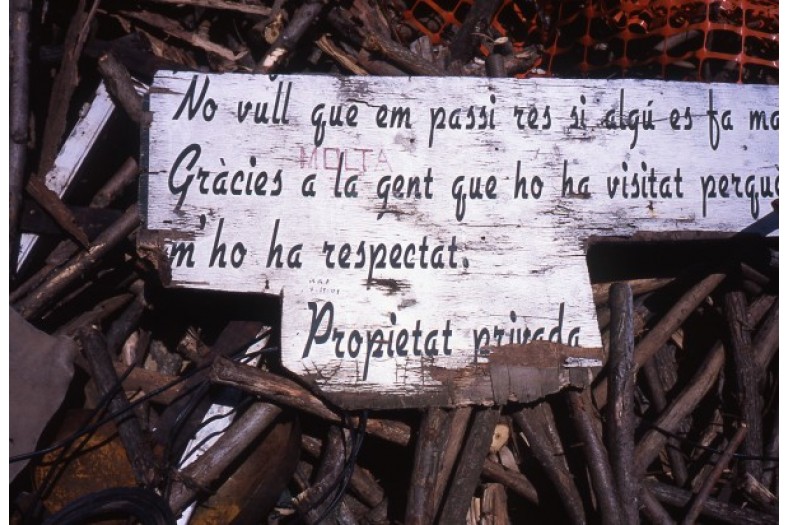 No vull que em passi res si algú es fa ma
MOLTA
Gràcies a la gent que ho ha visitat perquè
m'ho ha respectat.
Propietat privada